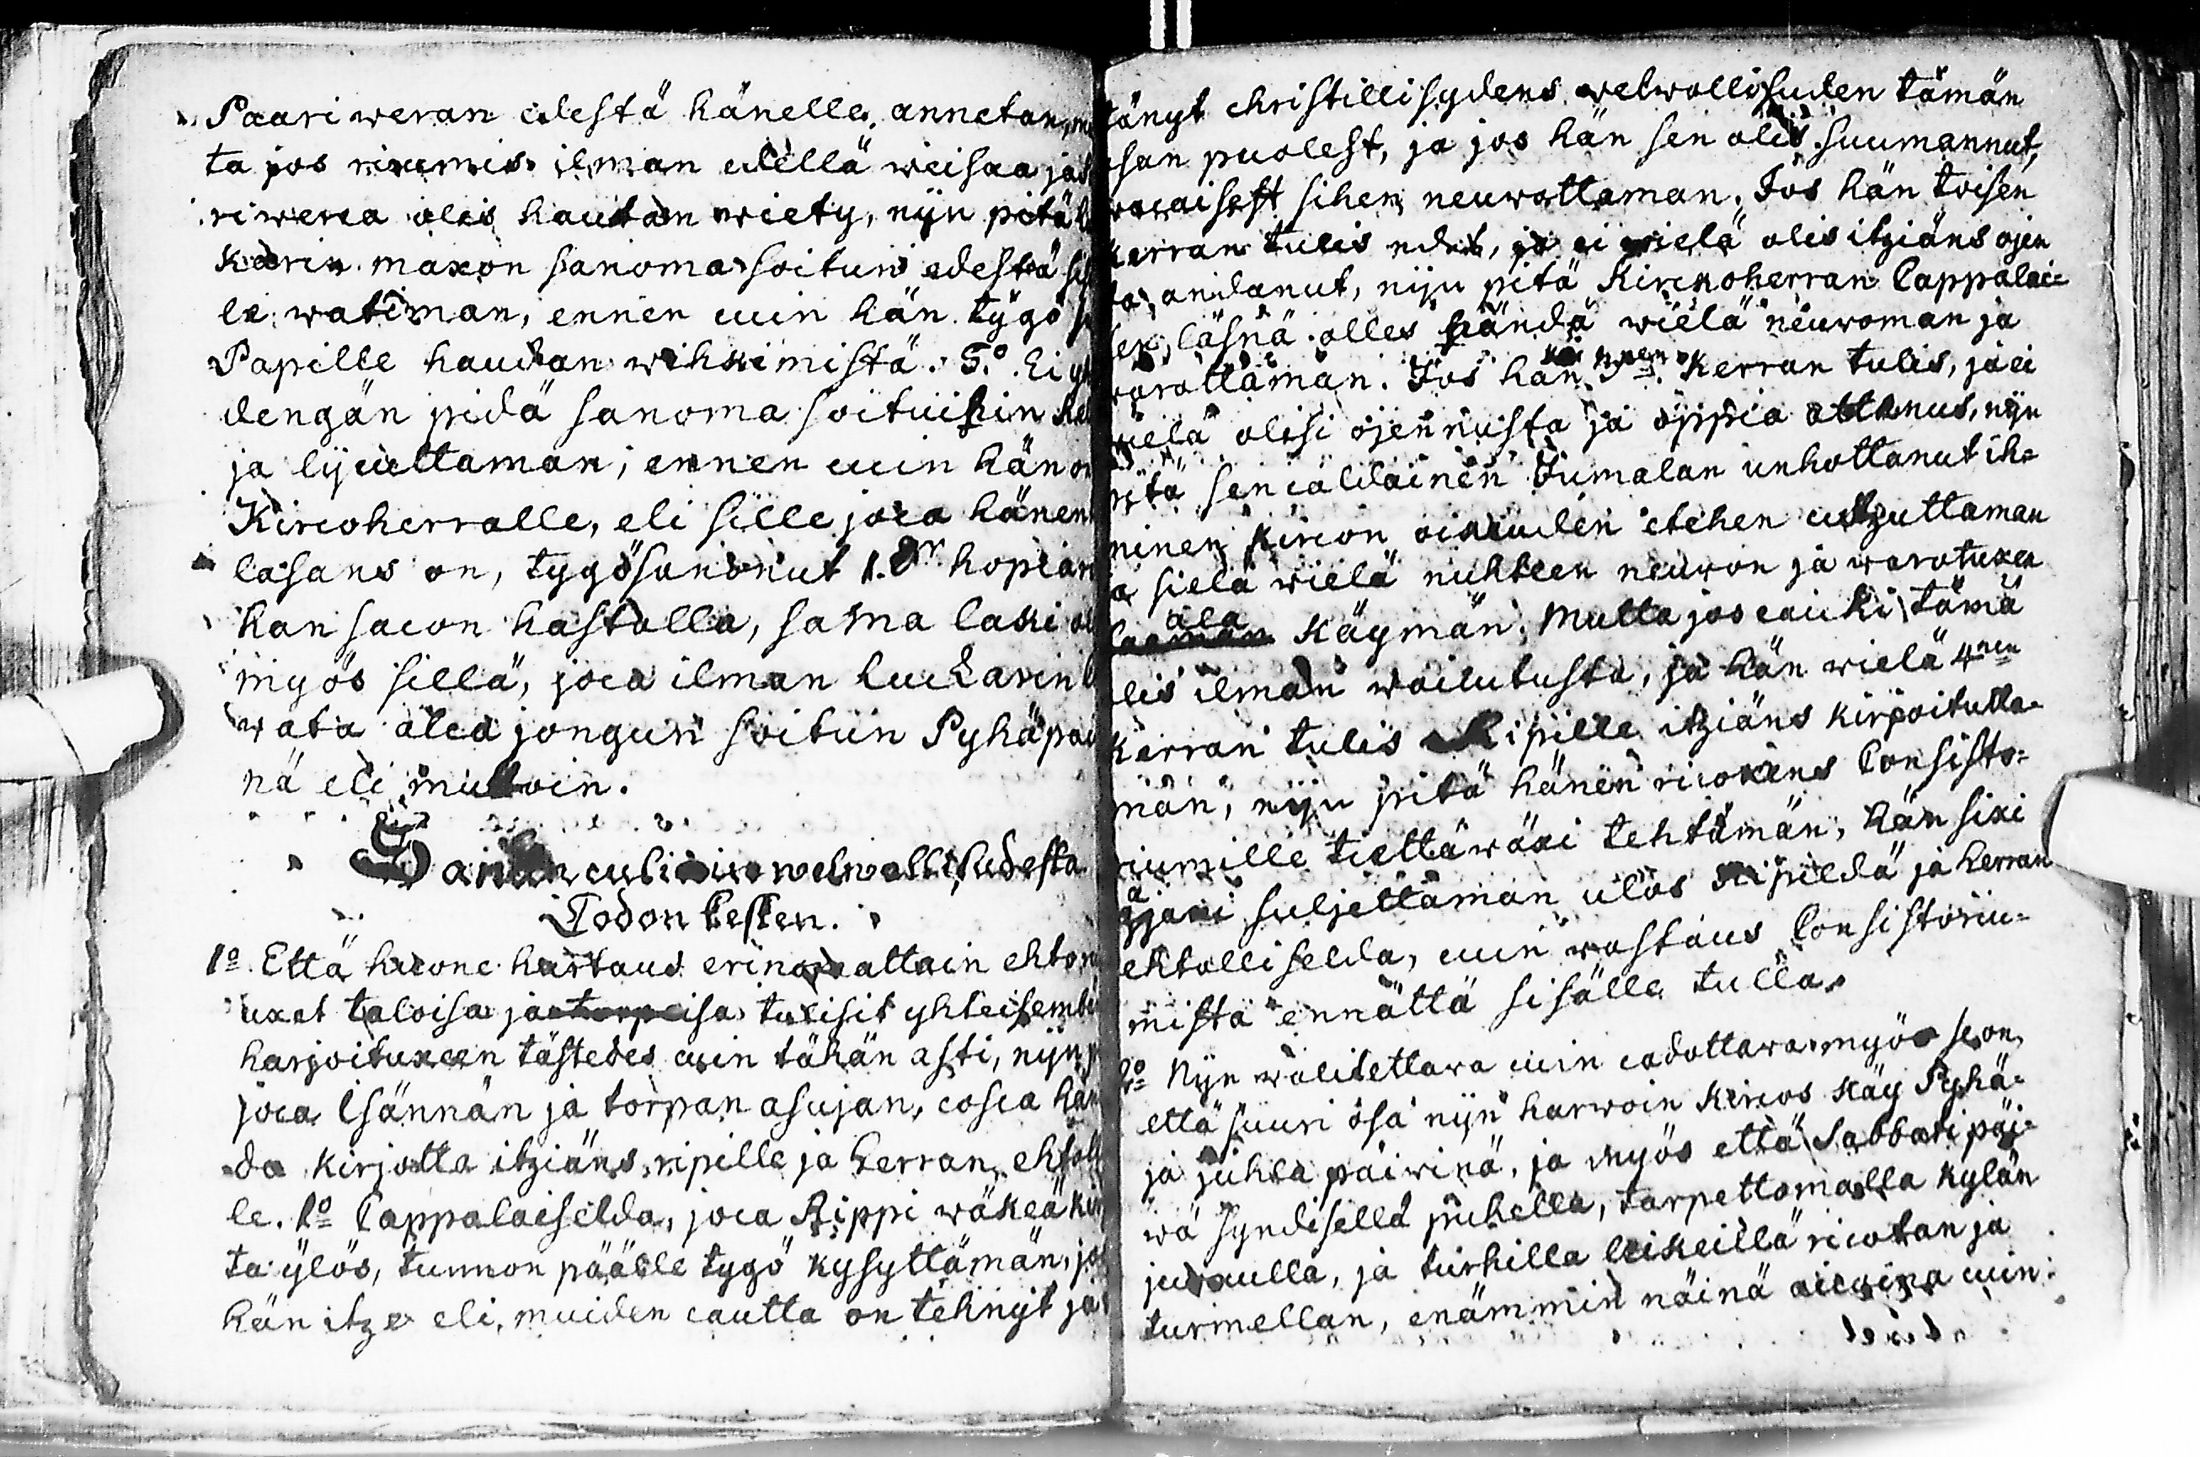 Paariweran edestä hänelle annetan,
ta jos ruumis ilman edellä weisaa
riwerca olis hautan wiety, nijn pitä
karin maxon sanoma soitun edestä
le watiman, ennen cuin hän tygö
Papille haudan wihkimistä. 5.o Ei
dengän pidä sanoma soituisin
ja lijcuttaman, ennen cuin hän on
Kircoherralle, eli sille joca hänen
lasans on, tygösanonut 1. hopian
han sacon hastolla, sama laki
myös sillä, joca ilman luckarin
wata alca jongun soitun Pyhäpäi
nä eli muttoin.
Sanan culiain welwollisudesta
Codon kesken.
1o Että hucone hartaus erinomattain ehto
uxet taloisa ja torpeisa tulisit yhteisembi
harjoituxeen tästedes cuin tähän asti, nijn
joca Isännän ja torpan asujan, cosca hän
da kirjotta itziäns ripille ja Herran ehtol
le. 1o Cappalaiselda, joca Rippi wäkeä
ta ylös, tunnon päälle tygö kysyttämän, jos
hän itze eli muiden cautta on tehnyt ja
tänyt christillisydens welwollisuden tämän
san puolest, ja jos hän sen olis suumannut,
wacaisest sihen neuwottaman. Jos hän toisen
kerran tulis edes, ja ei wielä olis itziäns ojen
andanut, nijn pitä Kirckoherran Cappalai-
läsnä olles händä wielä neuwoman ja
warottaman. Jos hän 3nen kerran tulis, ja ei
wielä olisi ojennusta ja oppia ottanus, nijn
pitä sencaldainen Jumalan unhottanut ih-
minen kircon oikeuden etehen cutzuttaman
ja sielä wielä nuhteen neuwon ja warotuxen
ala käymän. Mutta jos caicki tämä
olis ilman waicutusta, ja hän wielä 4nen
kerran tulis Ripille itziäns kirjoitutta-
man, nijn pitä hänen ricoxens Consisto-
riumille tiettäwäxi tehtämän, hän sixi
suljettaman ulos Ripildä ja herran
ehtolliselda, cuin wastaus Consistoriu-
mista ennättä sisälle tulla.
2o Nijn walitettava cuin cadottawa myös se on,
että suuri osa nijn harwoin kircos käy Pyhä-
ja juhla päiwinä, ja myös että Sabbati päi-
wä syndisellä puhella, tarpettomalla kylän
juoxulla, ja turhilla leikeillä ricotan ja
turmellan, enämmin näinä aicoina cuin